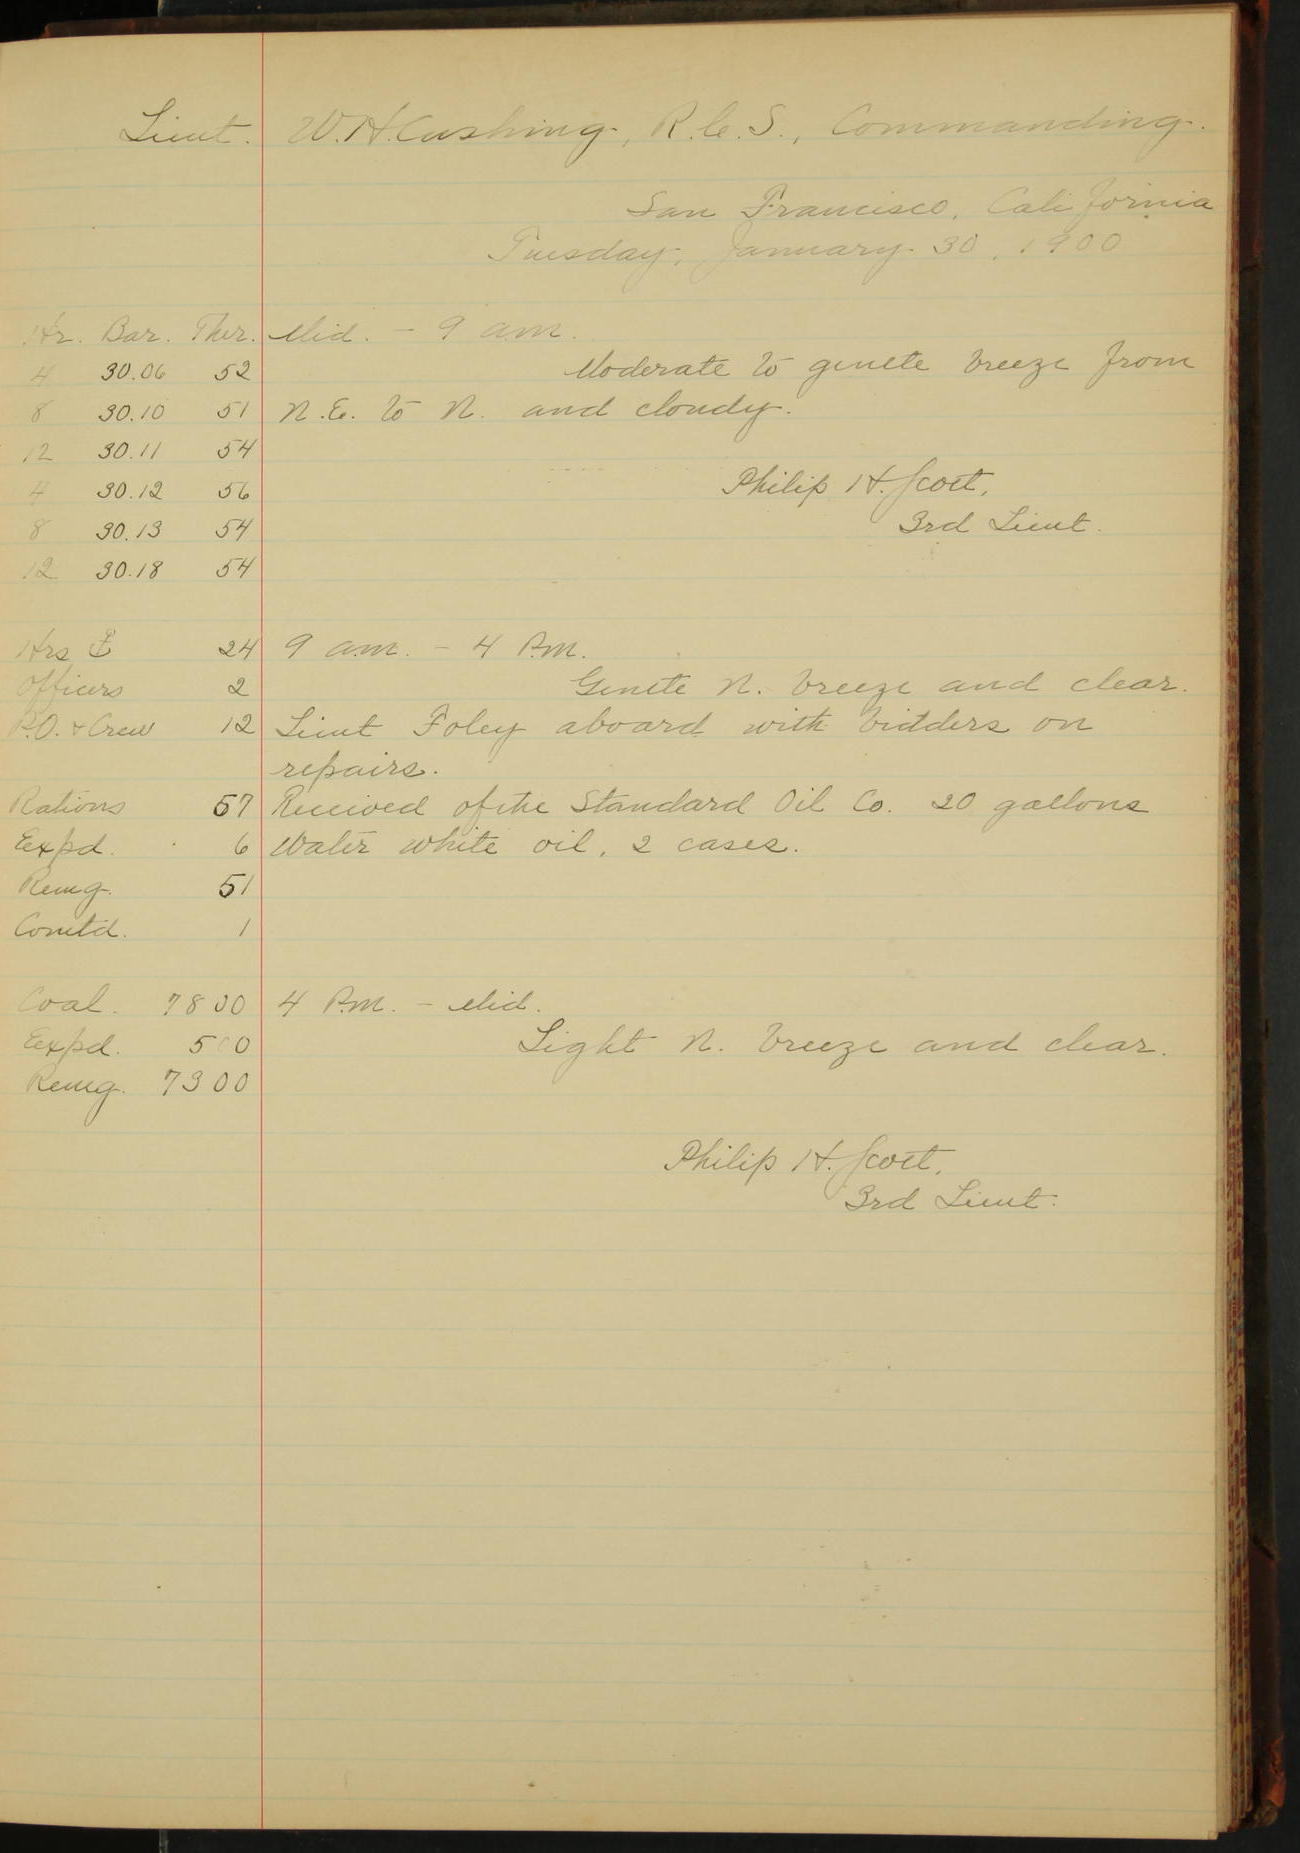 Lieut. W.H. Cushing, R.C.S., Commanding.
San Francisco, California
Tuesday, January 30, 1900
Hr. Bar. Ther. Mid. - 9 a.m.
4 30.06 52 Moderate to gentle breeze from
8 30.10 51 N.E. to N. and cloudy.
12 30.11 54
4 30.12 56 Philip H. Scott,
8 30.13 54 3rd Lieut.
12 30.18 54
Hrs ⚓ 24 9 a.m. - 4 P.M.
Officers 2 Gentle N. breeze and clear.
P.O. & Crew 12 Lieut Foley aboard with bidders on
repairs.
Rations 57 Received of the Standard Oil Co. 20 gallons
Expd. 6 Water white oil, 2 cases.
Remg. 51
Comtd. 1
Coal. 7800 4 P.M. - Mid.
Expd. 500 Light N. breeze and clear.
Remg. 7300
Philip H. Scott,
3rd Lieut.